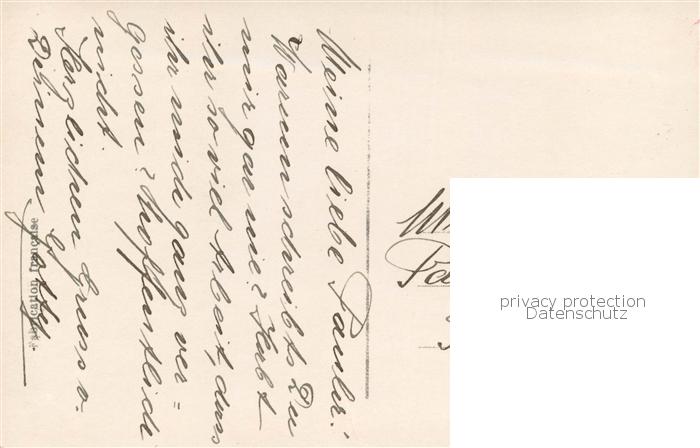 Meine liebe Pauly!
Warum schreibts Du
mir gar nie? Habt
ihr so viel Arbeit, dass
ihr mich ganz ver=
gossen? Hoffentlich
nicht.
Herzlichen Gruss v.
Deinem
Fabrication française
privacy protection
Datenschutz